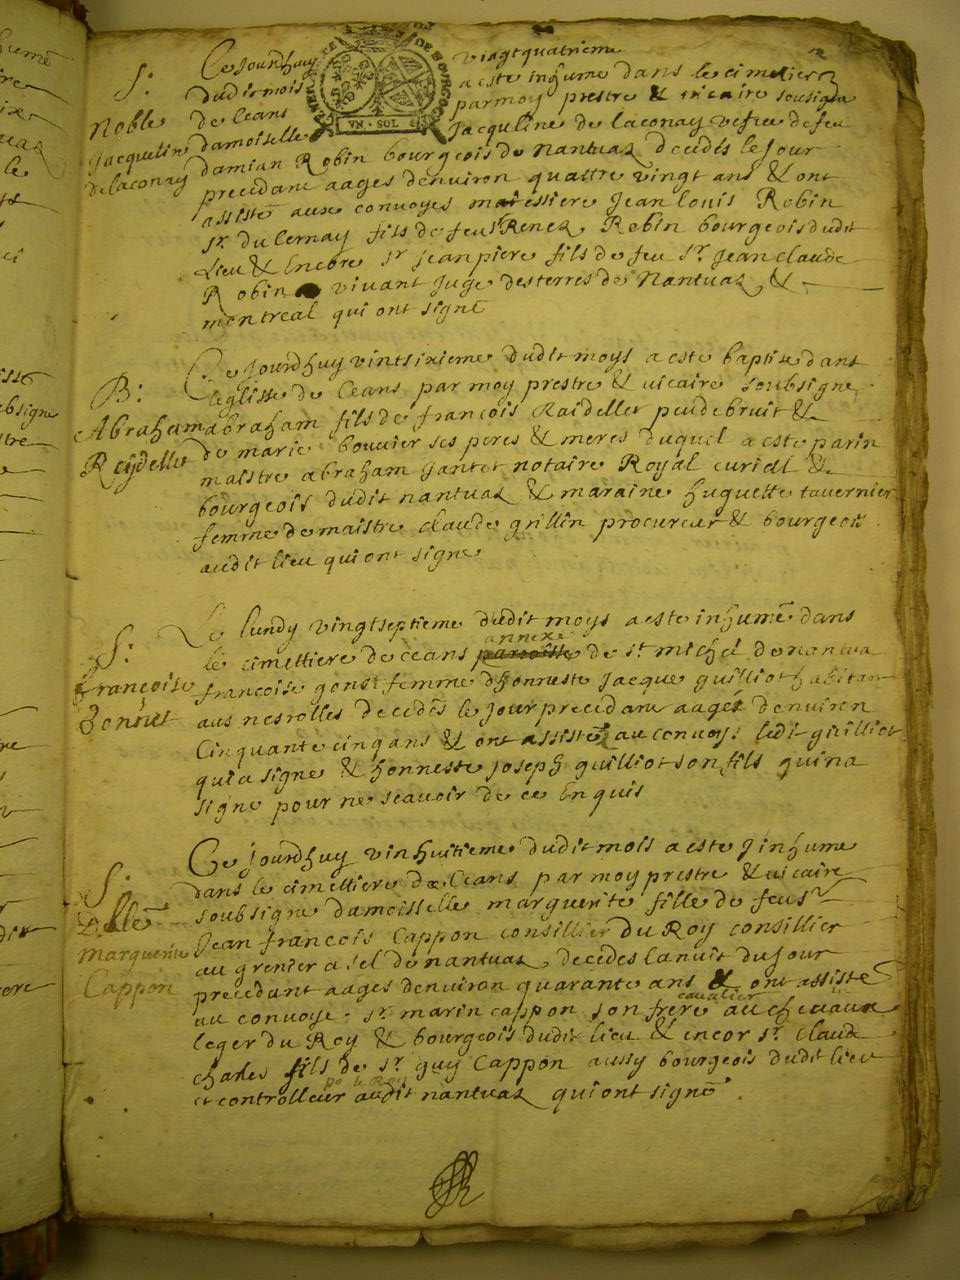 S:
Noble
Jacqueline
de laconay
Ce Jourdhuy vingtquatrieme
dudit mois a este inhume dans le cimetiere
de Ceans par moy prestre & vicaire sousigne
damoiselle Jacquline de laconay vefve de feu
damian Robin bourgeois de Nantuaz decedes le Jour
precedant aages denviron quattre vingt ans & ont
assiste aux convoyes messiere Jean louis Robin
sr. du Cernay fils de feu sr Renez Robin bourgeois dudit
Lieu & Encore sr jeanpiere fils de feu sr. Jean claude
Robin vivant Juge des terres de Nantuaz &
montreal qui ont signe
GENERALITE DE BOURGOGNE
VN · SOL
B:
Abraham
Reydelle
Ce Jourdhuy vintsixieme dudit moys a este baptise dans
leglisse de Ceans par moy prestre & vicaire soubsigne
abraham fils de francois Raidellet peudebruit &
de marie bouvier ses peres & meres duquel a este parin
maistre abraham Jantet notaire Royal curial &
bourgeois dudit nantuaz & maraine huguette tavernier
femme de maistre claude grillin procureur & bourgeois
audit lieu qui ont signe
S:
francoise
Le lundy vingtseptieme dudit moys a este inhume dans
le cimettiere de ceans annexe paroisse de st. michel de nantua
francoise gonet femme dhonneste Jacque guilliot habitant
aus nesrolles decedes le Jour precedant aages denviron
Cinquante cinq ans & ont assiste au convoys ledit guilliot
qui a signe & honneste joseph guilliot son fils qui na
signe pour ne scavoir de ce Enquis
S.
Dlle
marguerite
Cappon
Ce jourdhuy vinhuitieme dudit mois a este Jnhume
dans le cimettiere de Ceans par moy prestre & vicaire
soubsigne damoisselle marguerite fille de feu sr
Jean francois Cappon consillier du Roy consillier
au grenier a sel de nantuaz decedes la nuit du jour
precedant aages denviron quarante ans & ont assiste
au convoye sr. marin cappon son frere cavalier au chevaux
leger du Roy & bourgeois dudit lieu & encor sr. claude
charles fils de sr. guy Cappon aussy bourgeois dudit lieu
et controlleur po le Roy audit nantuaz qui ont signe